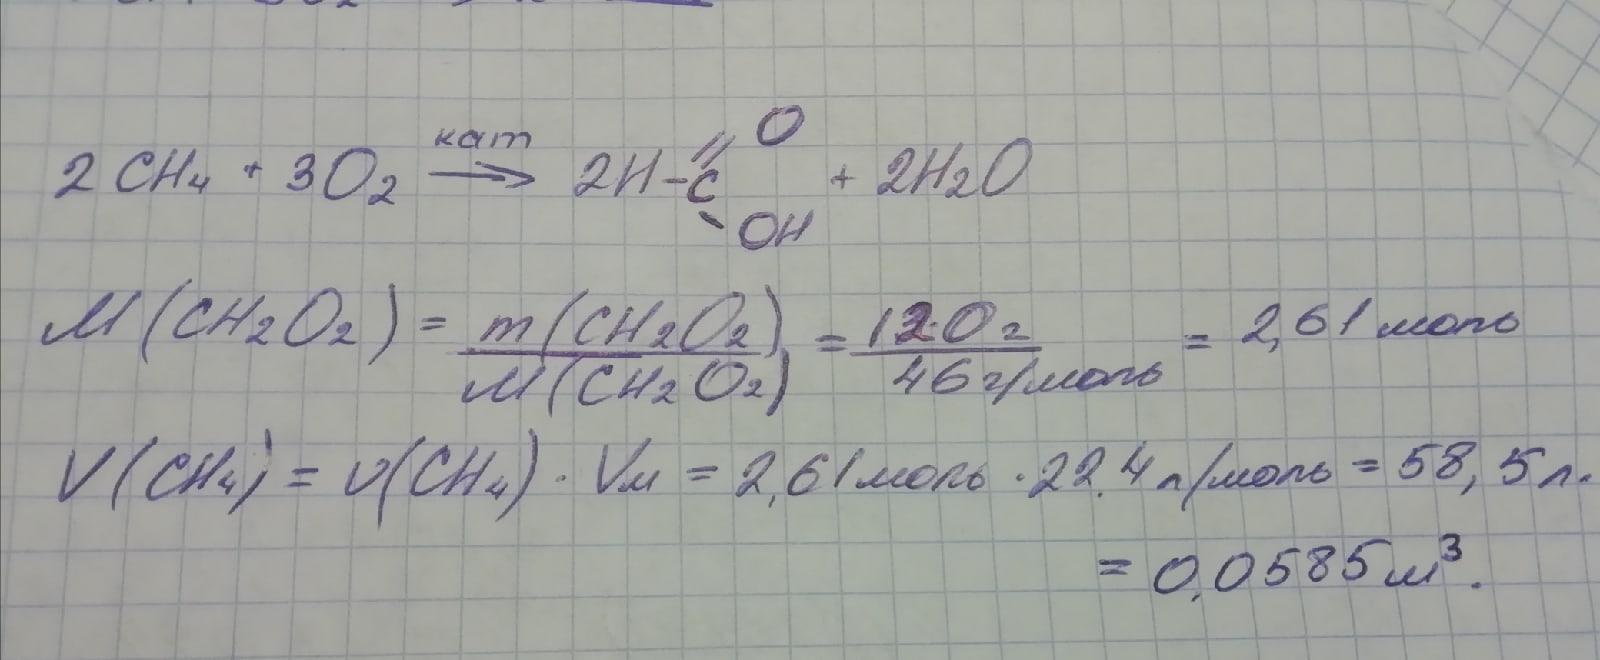 2 CH4 + 3O2 —кат→ 2H-C(=O)-OH + 2H2O
M(CH2O2) = m(CH2O2) / M(CH2O2) = 120г / 46 г/моль = 2,61 моль
V(CH4) = υ(CH4) · Vм = 2,61 моль · 22,4 л/моль = 58,5 л.
= 0,0585 м³.